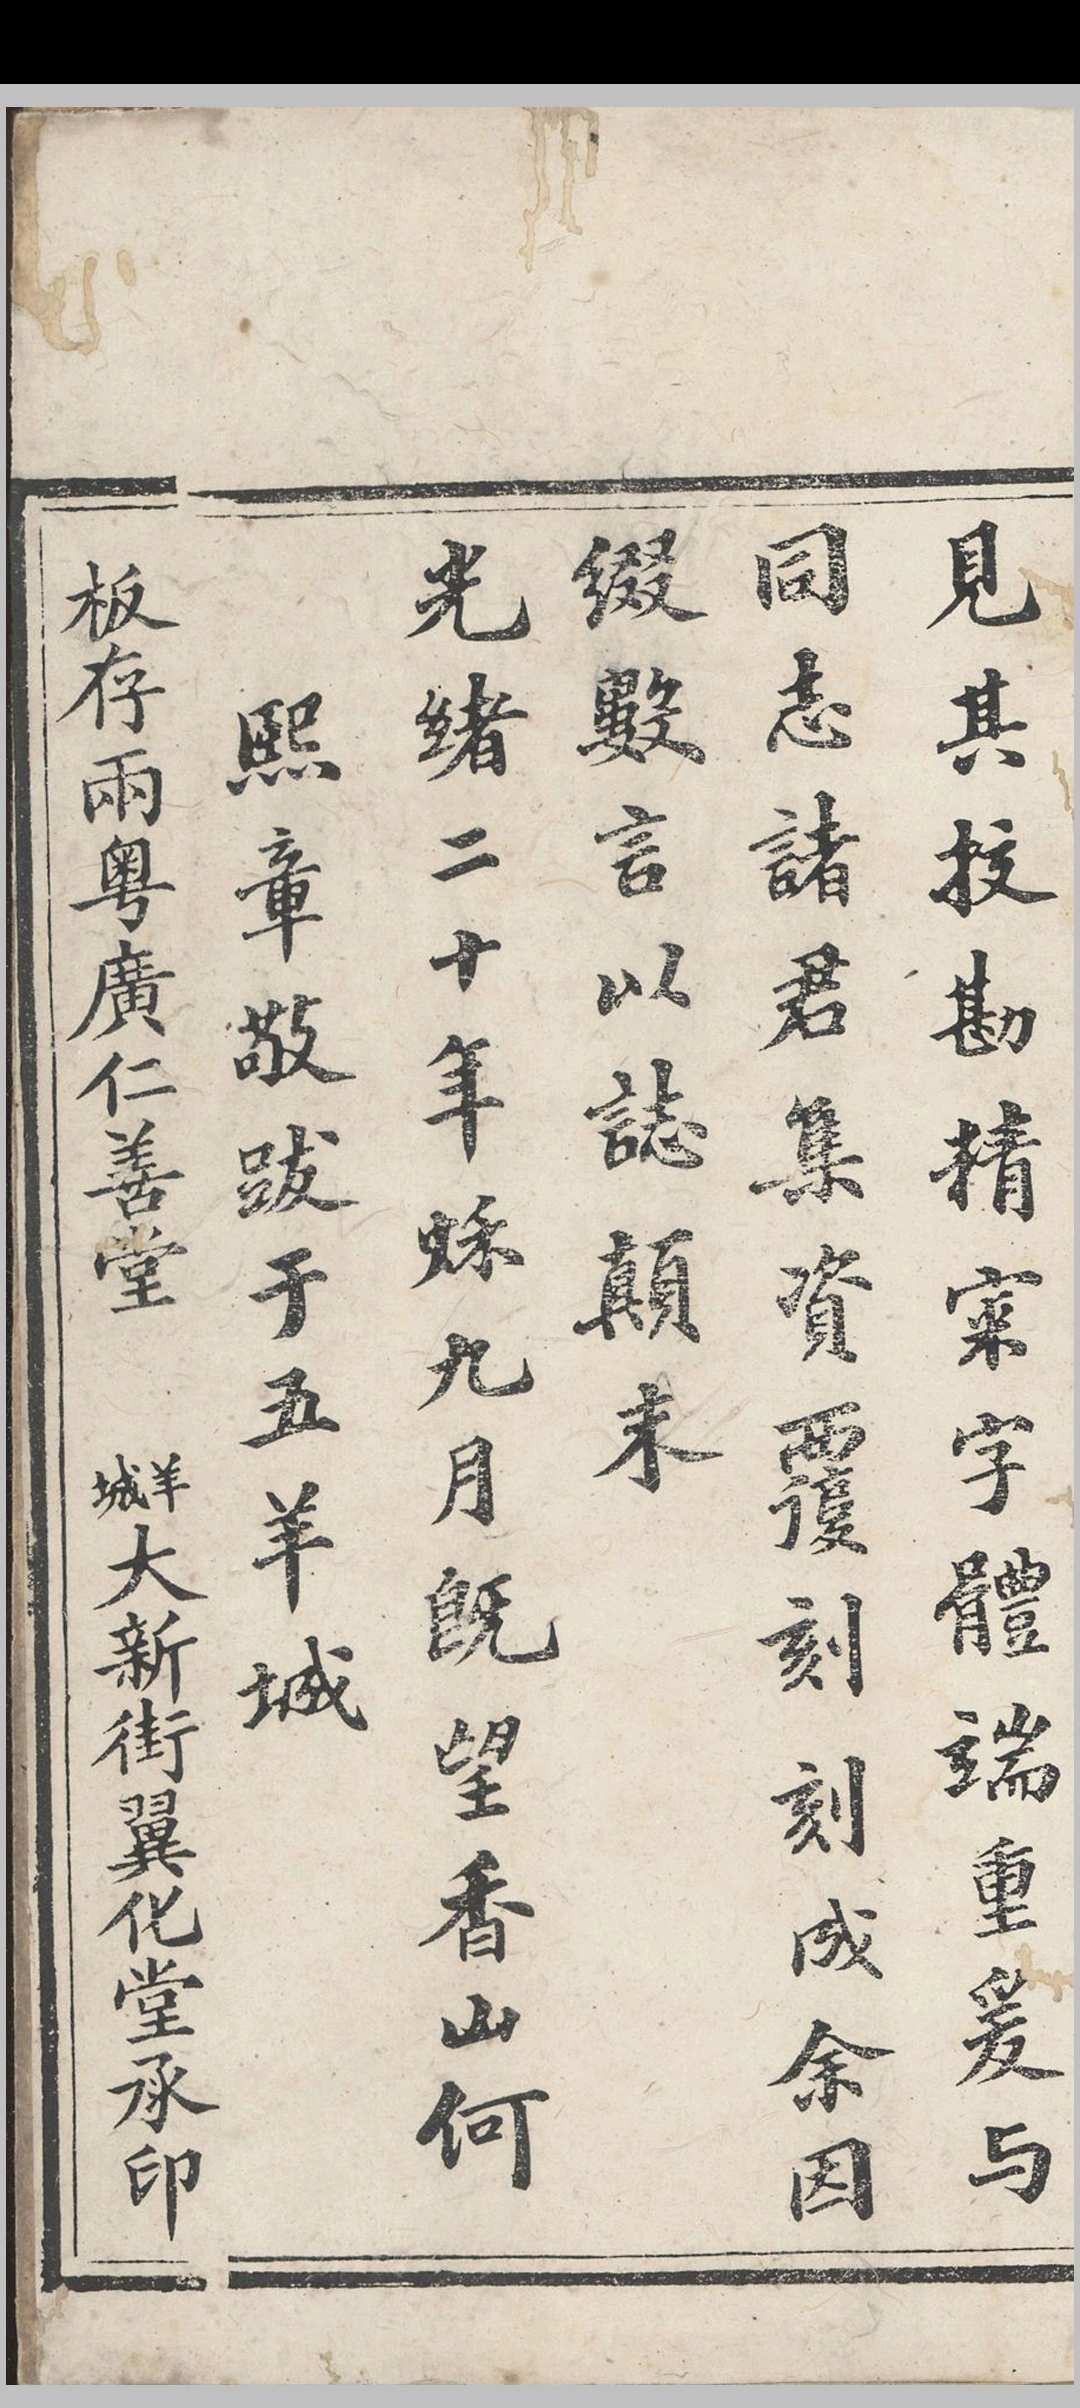 見其挍勘精寀字體端重爰与
同志諸君集資覆刻刻成余因
綴數言以誌顛末
光緒二十年秌九月既望香山何
熙章敬跋于五羊城
板存兩粵廣仁善堂 羊城大新街翼化堂承印